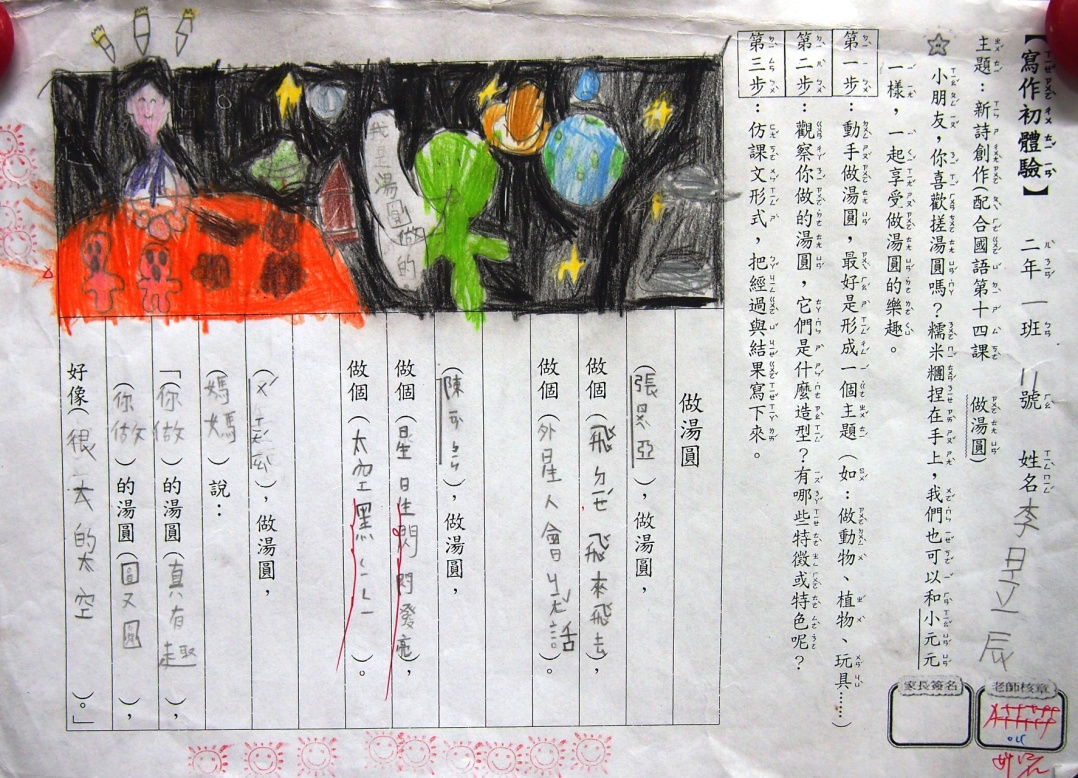 【寫作初體驗】 二年一班 11號 姓名李昱辰
主題：新詩創作(配合國語第十四課 做湯圓)
小朋友，你喜歡搓湯圓嗎？糯米糰捏在手上，我們也可以和小元元
一樣，一起享受做湯圓的樂趣。
第一步：動手做湯圓，最好是形成一個主題（如：做動物、植物、玩具……）
第二步：觀察你做的湯圓，它們是什麼造型？有哪些特徵或特色呢？
第三步：仿課文形式，把經過與結果寫下來。
老師核章
家長簽名
我是湯圓做的
做湯圓
(張恩亞)，做湯圓，
做個(飛ㄉㄝ 飛來飛去)，
做個(外星人會 話)。
(陳可)，做湯圓，
做個(星星閃閃發亮)，
做個(太空黑ㄟㄟ)。
，做湯圓，
(媽媽)說：
「(你做)的湯圓(真有趣)，
(你做)的湯圓(圓又圓)，
好像(很大的太空)。」